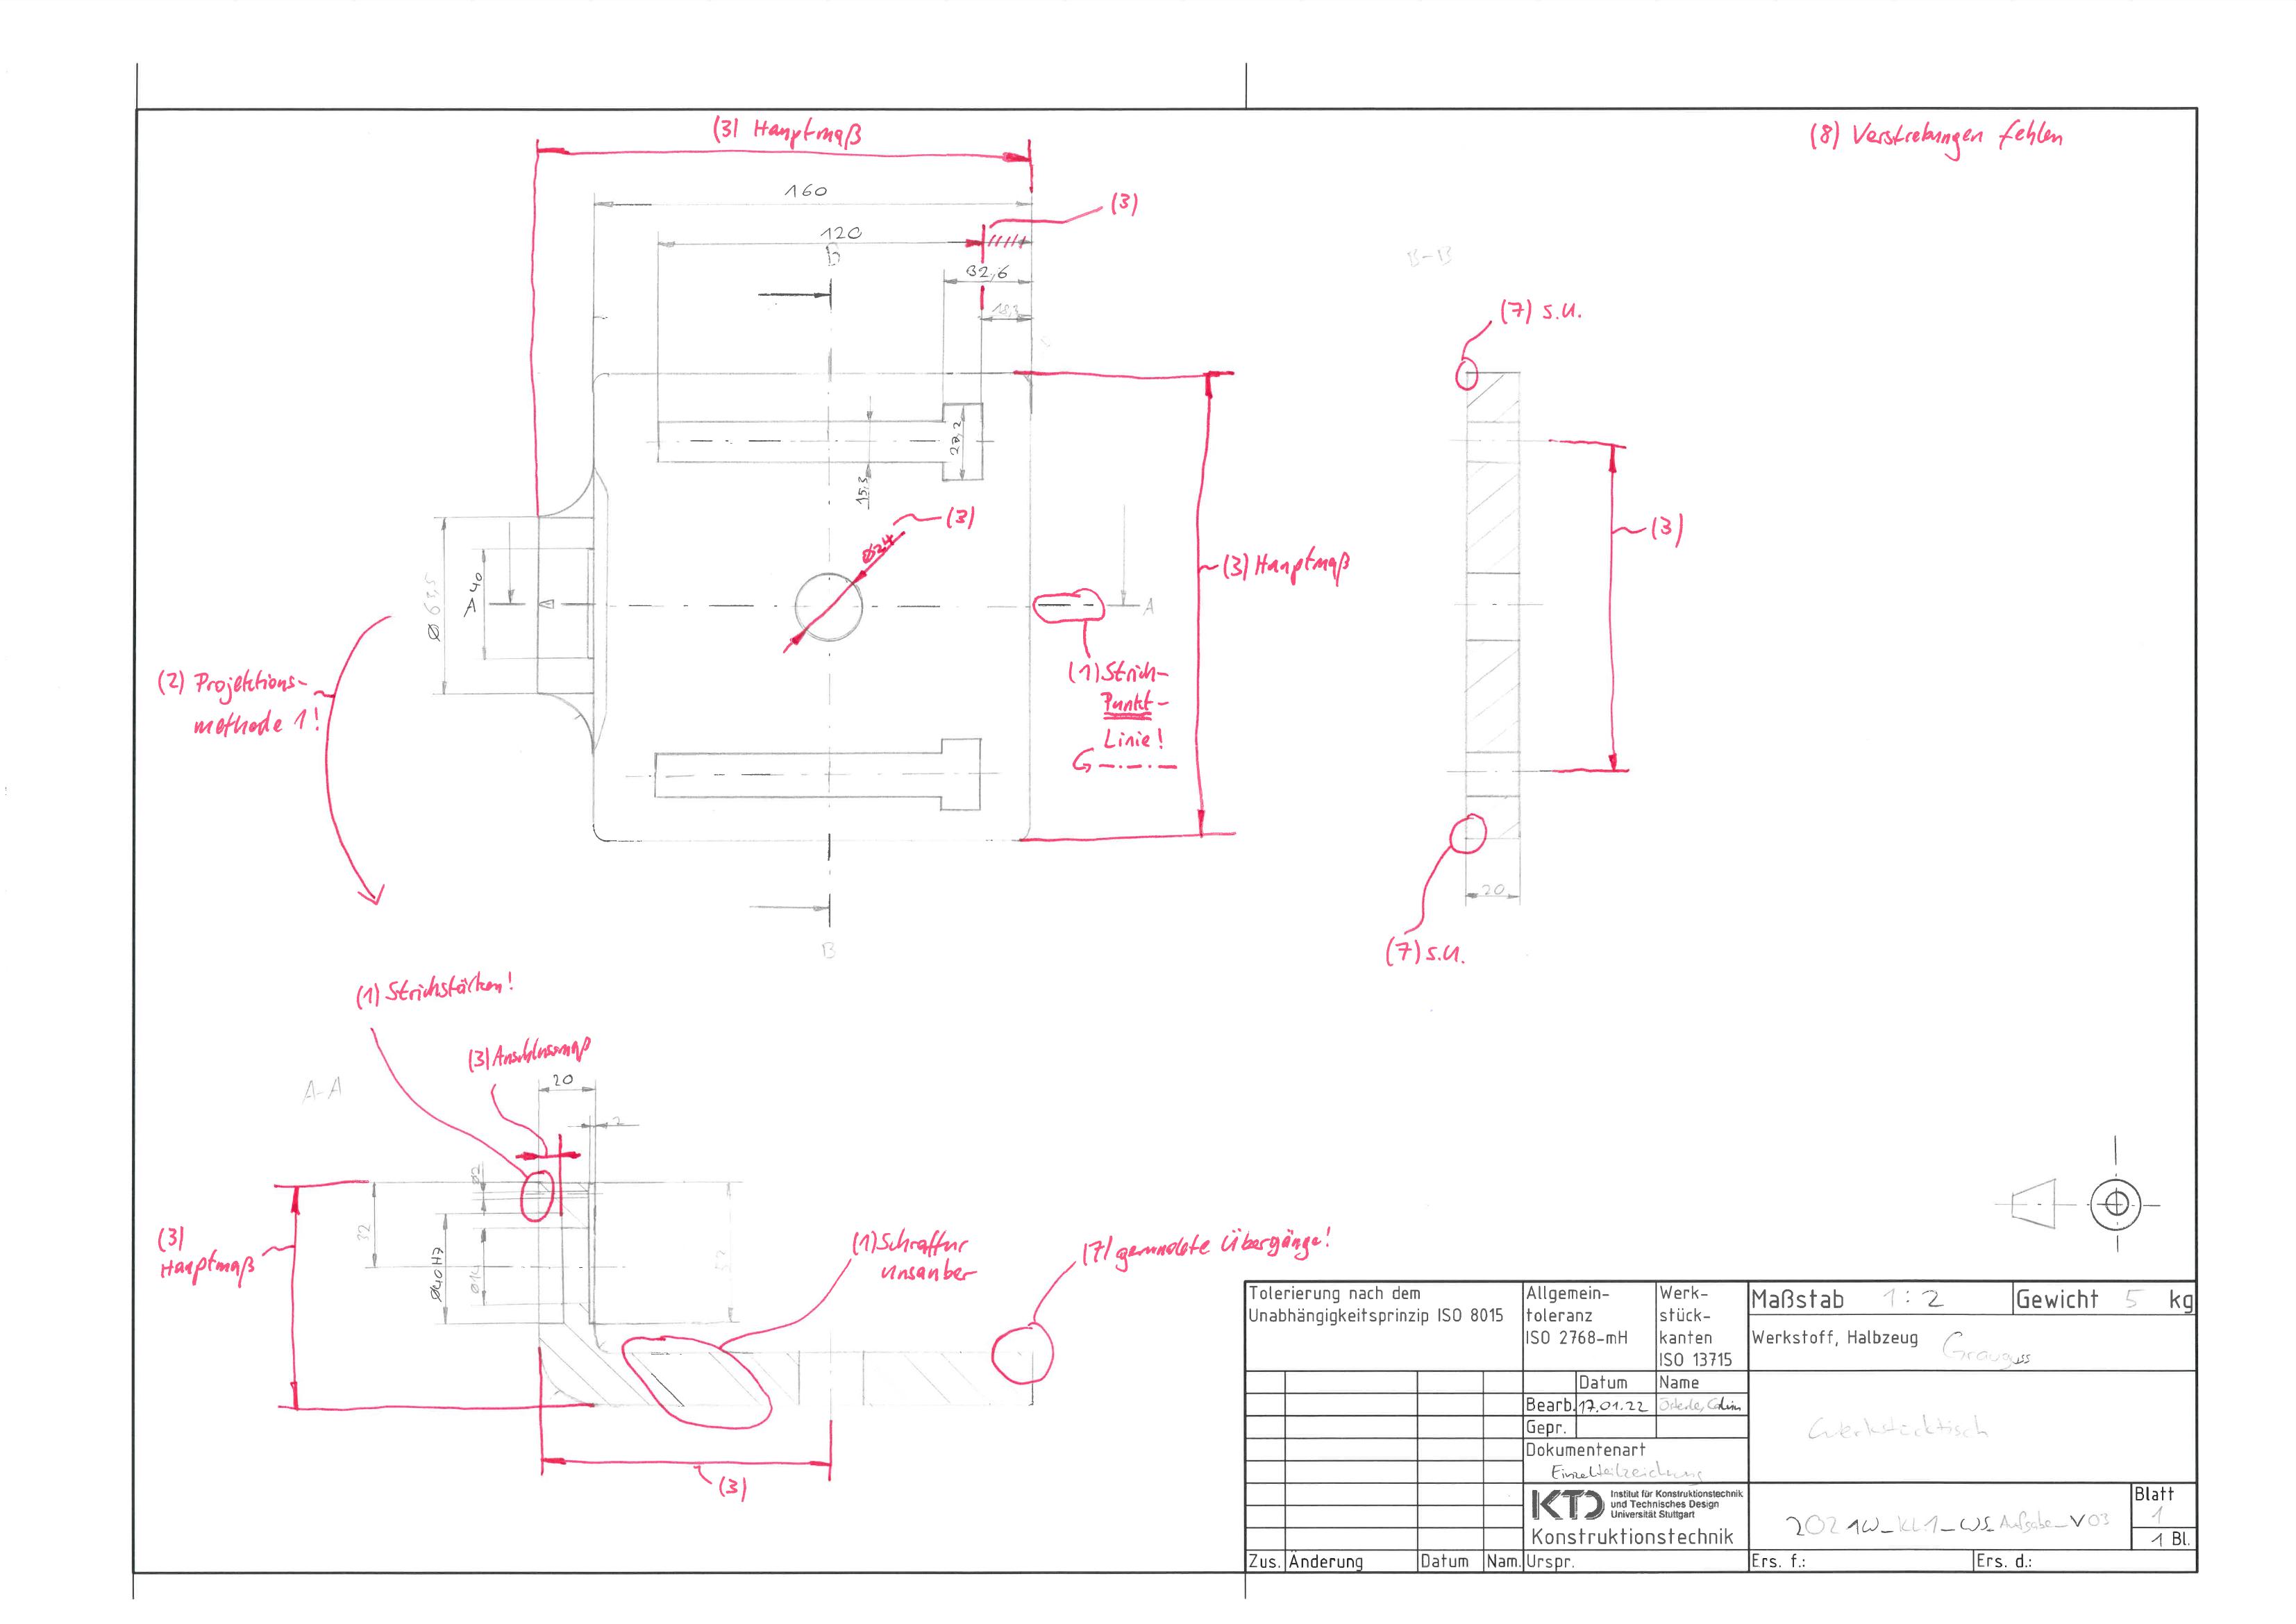 (3) Hauptmaß
(8) Verstrebungen fehlen
160
(3)
120
B
32,6
18,3
B-B
(7) s.u.
28,2
15,3
(3)
Ø24
(3)
(3) Hauptmaß
Ø 63,5
A
40
A
(1) Strich-
Punkt-
Linie!
(2) Projektions-
methode 1!
20
B
(7) s.u.
(1) Strichstärken!
(3) Anschlussmaß
A-A
20
2
32
(3)
Hauptmaß
Ø40H7
Ø14
(1) Schraffur
unsauber
(7) gerundete Übergänge!
(3)
Tolerierung nach dem
Unabhängigkeitsprinzip ISO 8015
Allgemein-
toleranz
ISO 2768-mH
Werk-
stück-
kanten
ISO 13715
Maßstab 1:2
Gewicht 5 kg
Werkstoff, Halbzeug Grauguss
Datum Name
Bearb. 17.01.22 Colin
Gepr.
Dokumentenart
Einzelteilzeichnung
Werkstücktisch
KTD Institut für Konstruktionstechnik
und Technisches Design
Universität Stuttgart
Konstruktionstechnik
2021W_KL1_WS_Aufgabe_V03
Blatt
1
1 Bl.
Zus. Änderung Datum Nam. Urspr. Ers. f.: Ers. d.: